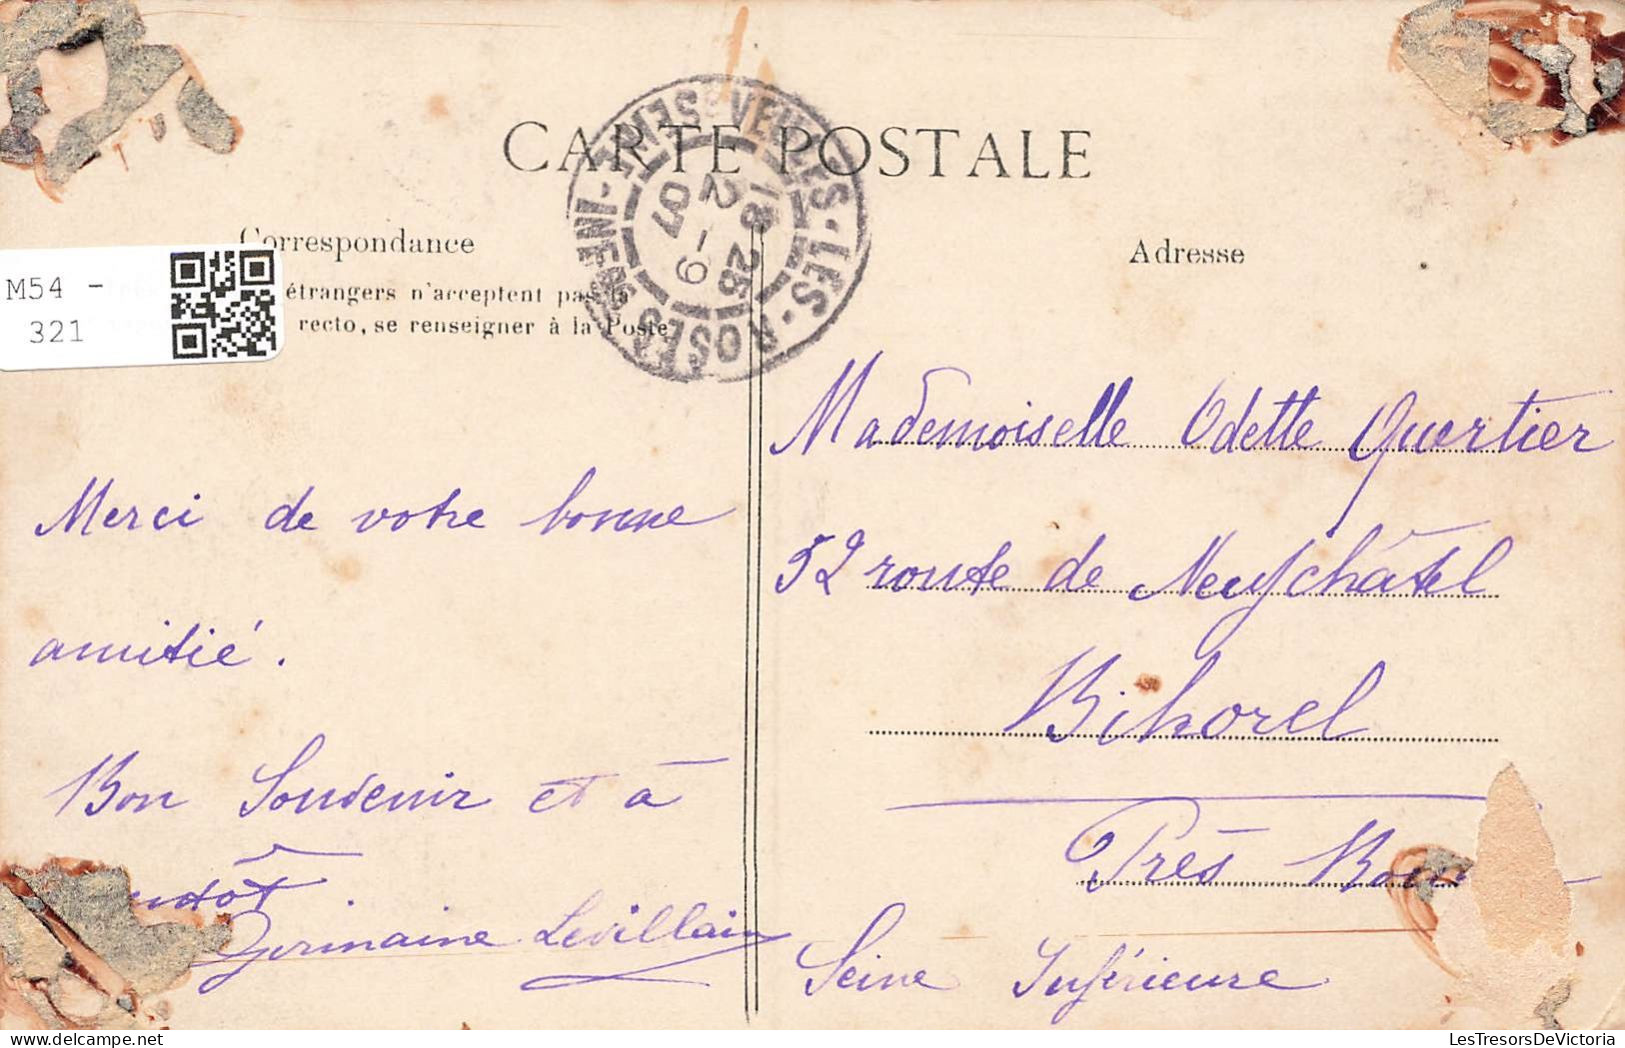 CARTE POSTALE
Correspondance
étrangers n'acceptent pas la
recto, se renseigner à la Poste
M54 -
321
VEULES-LES-ROSES
SEINE-INFRE
18 25
2 - 9
07
Merci de votre bonne
amitié.
Bon Souvenir et à
Germaine Levillain
Adresse
Mademoiselle Odette Quertier
52 route de Neufchâtel
Bihorel
Près
Seine Inférieure
LesTresorsDeVictoria